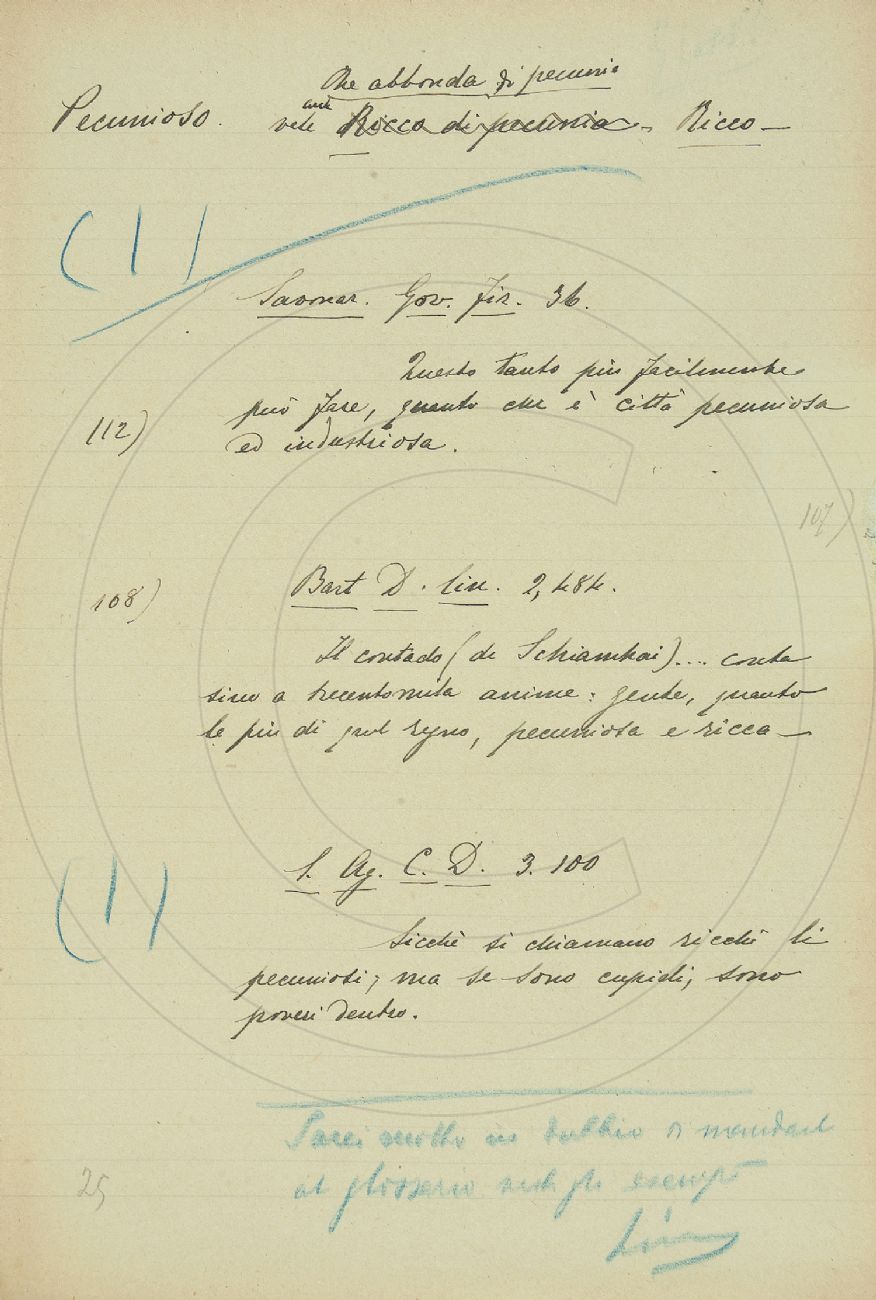 Che abbonda di pecunia
Pecunioso. vale anche Ricco di pecunia - Ricco -
( 1 )
Savonar. Gov. Fir. 36.
Questo tanto più facilmente
112) può fare, quanto che è città pecuniosa
ed industriosa.
107)
108) Bart D. Cin. 2,484.
Il contado (di Schiamhai).... conta
sino a trecentomila anime: gente, quanto
le più di quel regno, pecuniosa e ricca -
S. Ag. C. D. 3. 100
( 1 )
Sicchè si chiamano ricchi li
pecuniosi; ma se sono cupidi, sono
poveri dentro.
Sarei molto in dubbio di mandare
al glossario gli esempi
25